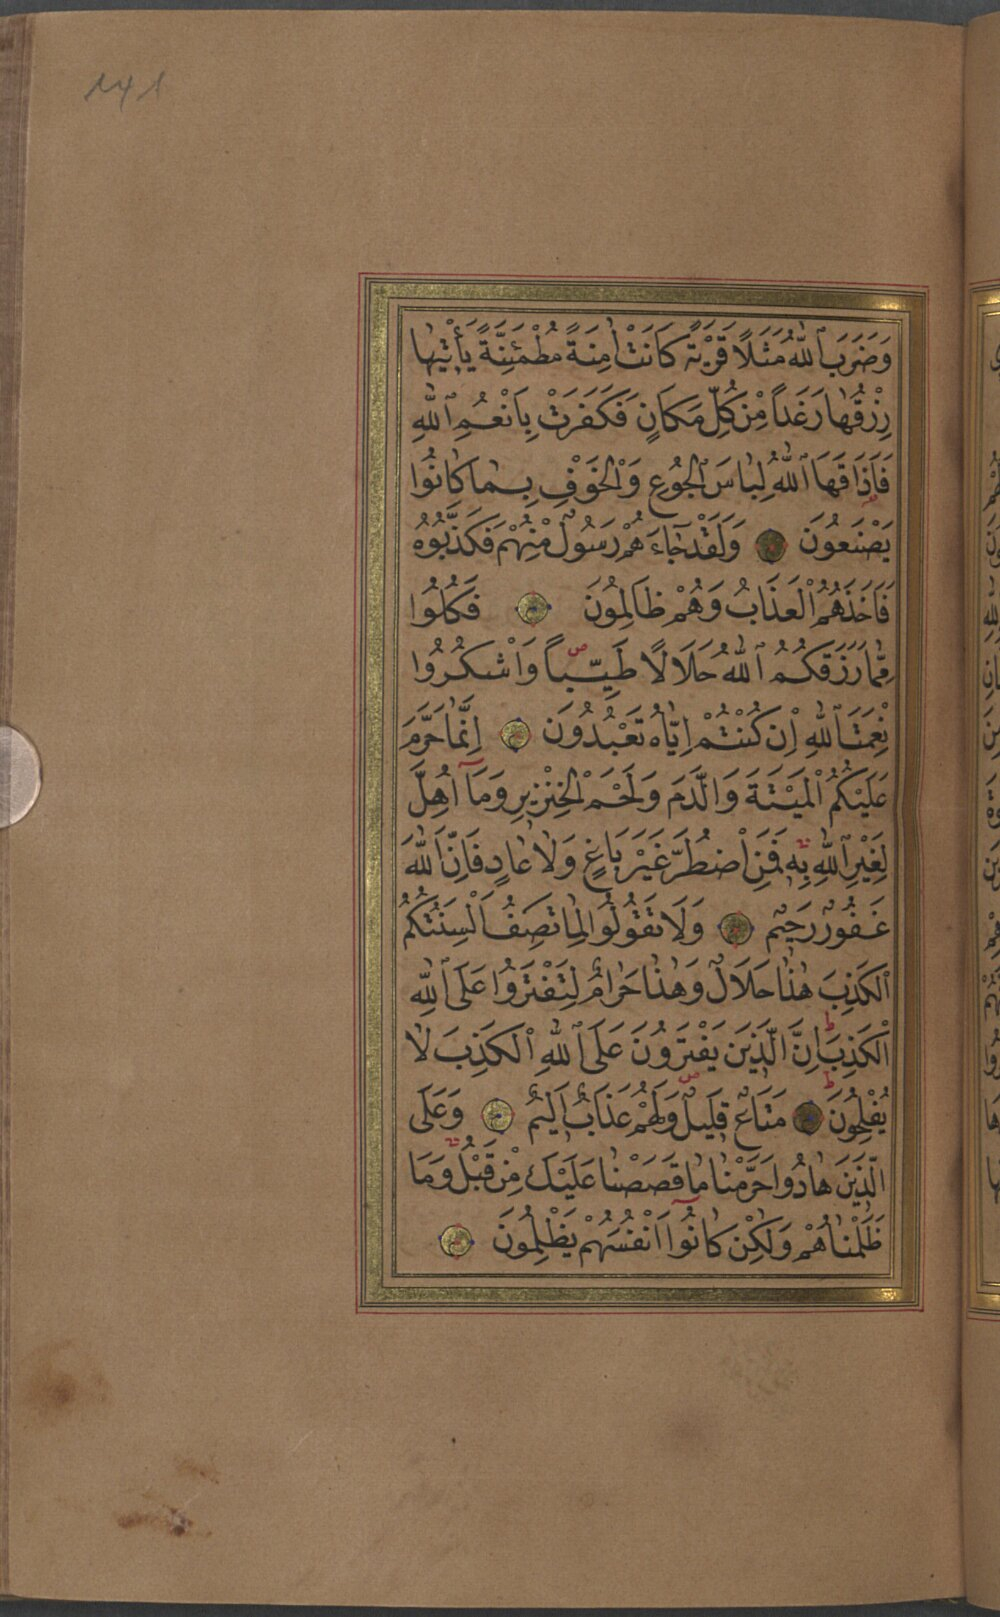 141
وَضَرَبَ ٱللّٰهُ مَثَلًا قَرْيَةً كَانَتْ اٰمِنَةً مُطْمَئِنَّةً يَأْتٖيهَا
رِزْقُهَا رَغَدًا مِنْ كُلِّ مَكَانٍ فَكَفَرَتْ بِاَنْعُمِ ٱللّٰهِ
فَاَذَاقَهَا ٱللّٰهُ لِبَاسَ ٱلْجُوعِ وَالْخَوْفِ بِمَا كَانُوا
يَصْنَعُونَ وَلَقَدْ جَٓاءَهُمْ رَسُولٌ مِنْهُمْ فَكَذَّبُوهُ
فَاَخَذَهُمُ الْعَذَابُ وَهُمْ ظَالِمُونَ فَكُلُوا
مِمَّا رَزَقَكُمُ ٱللّٰهُ حَلَالًا طَيِّبًا وَاشْكُرُوا
نِعْمَتَ ٱللّٰهِ اِنْ كُنْتُمْ اِيَّاهُ تَعْبُدُونَ اِنَّمَا حَرَّمَ
عَلَيْكُمُ الْمَيْتَةَ وَالدَّمَ وَلَحْمَ الْخِنْزٖيرِ وَمَٓا اُهِلَّ
لِغَيْرِ ٱللّٰهِ بِهٖ فَمَنِ اضْطُرَّ غَيْرَ بَاغٍ وَلَا عَادٍ فَاِنَّ ٱللّٰهَ
غَفُورٌ رَحٖيمٌ وَلَا تَقُولُوا لِمَا تَصِفُ اَلْسِنَتُكُمُ
ٱلْكَذِبَ هٰذَا حَلَالٌ وَهٰذَا حَرَامٌ لِتَفْتَرُوا عَلَى ٱللّٰهِ
الْكَذِبَ اِنَّ الَّذٖينَ يَفْتَرُونَ عَلَى ٱللّٰهِ ٱلْكَذِبَ لَا
يُفْلِحُونَ مَتَاعٌ قَلٖيلٌ وَلَهُمْ عَذَابٌ اَلٖيمٌ وَعَلَى
الَّذٖينَ هَادُوا حَرَّمْنَا مَا قَصَصْنَا عَلَيْكَ مِنْ قَبْلُ وَمَا
ظَلَمْنَاهُمْ وَلٰكِنْ كَانُٓوا اَنْفُسَهُمْ يَظْلِمُونَ